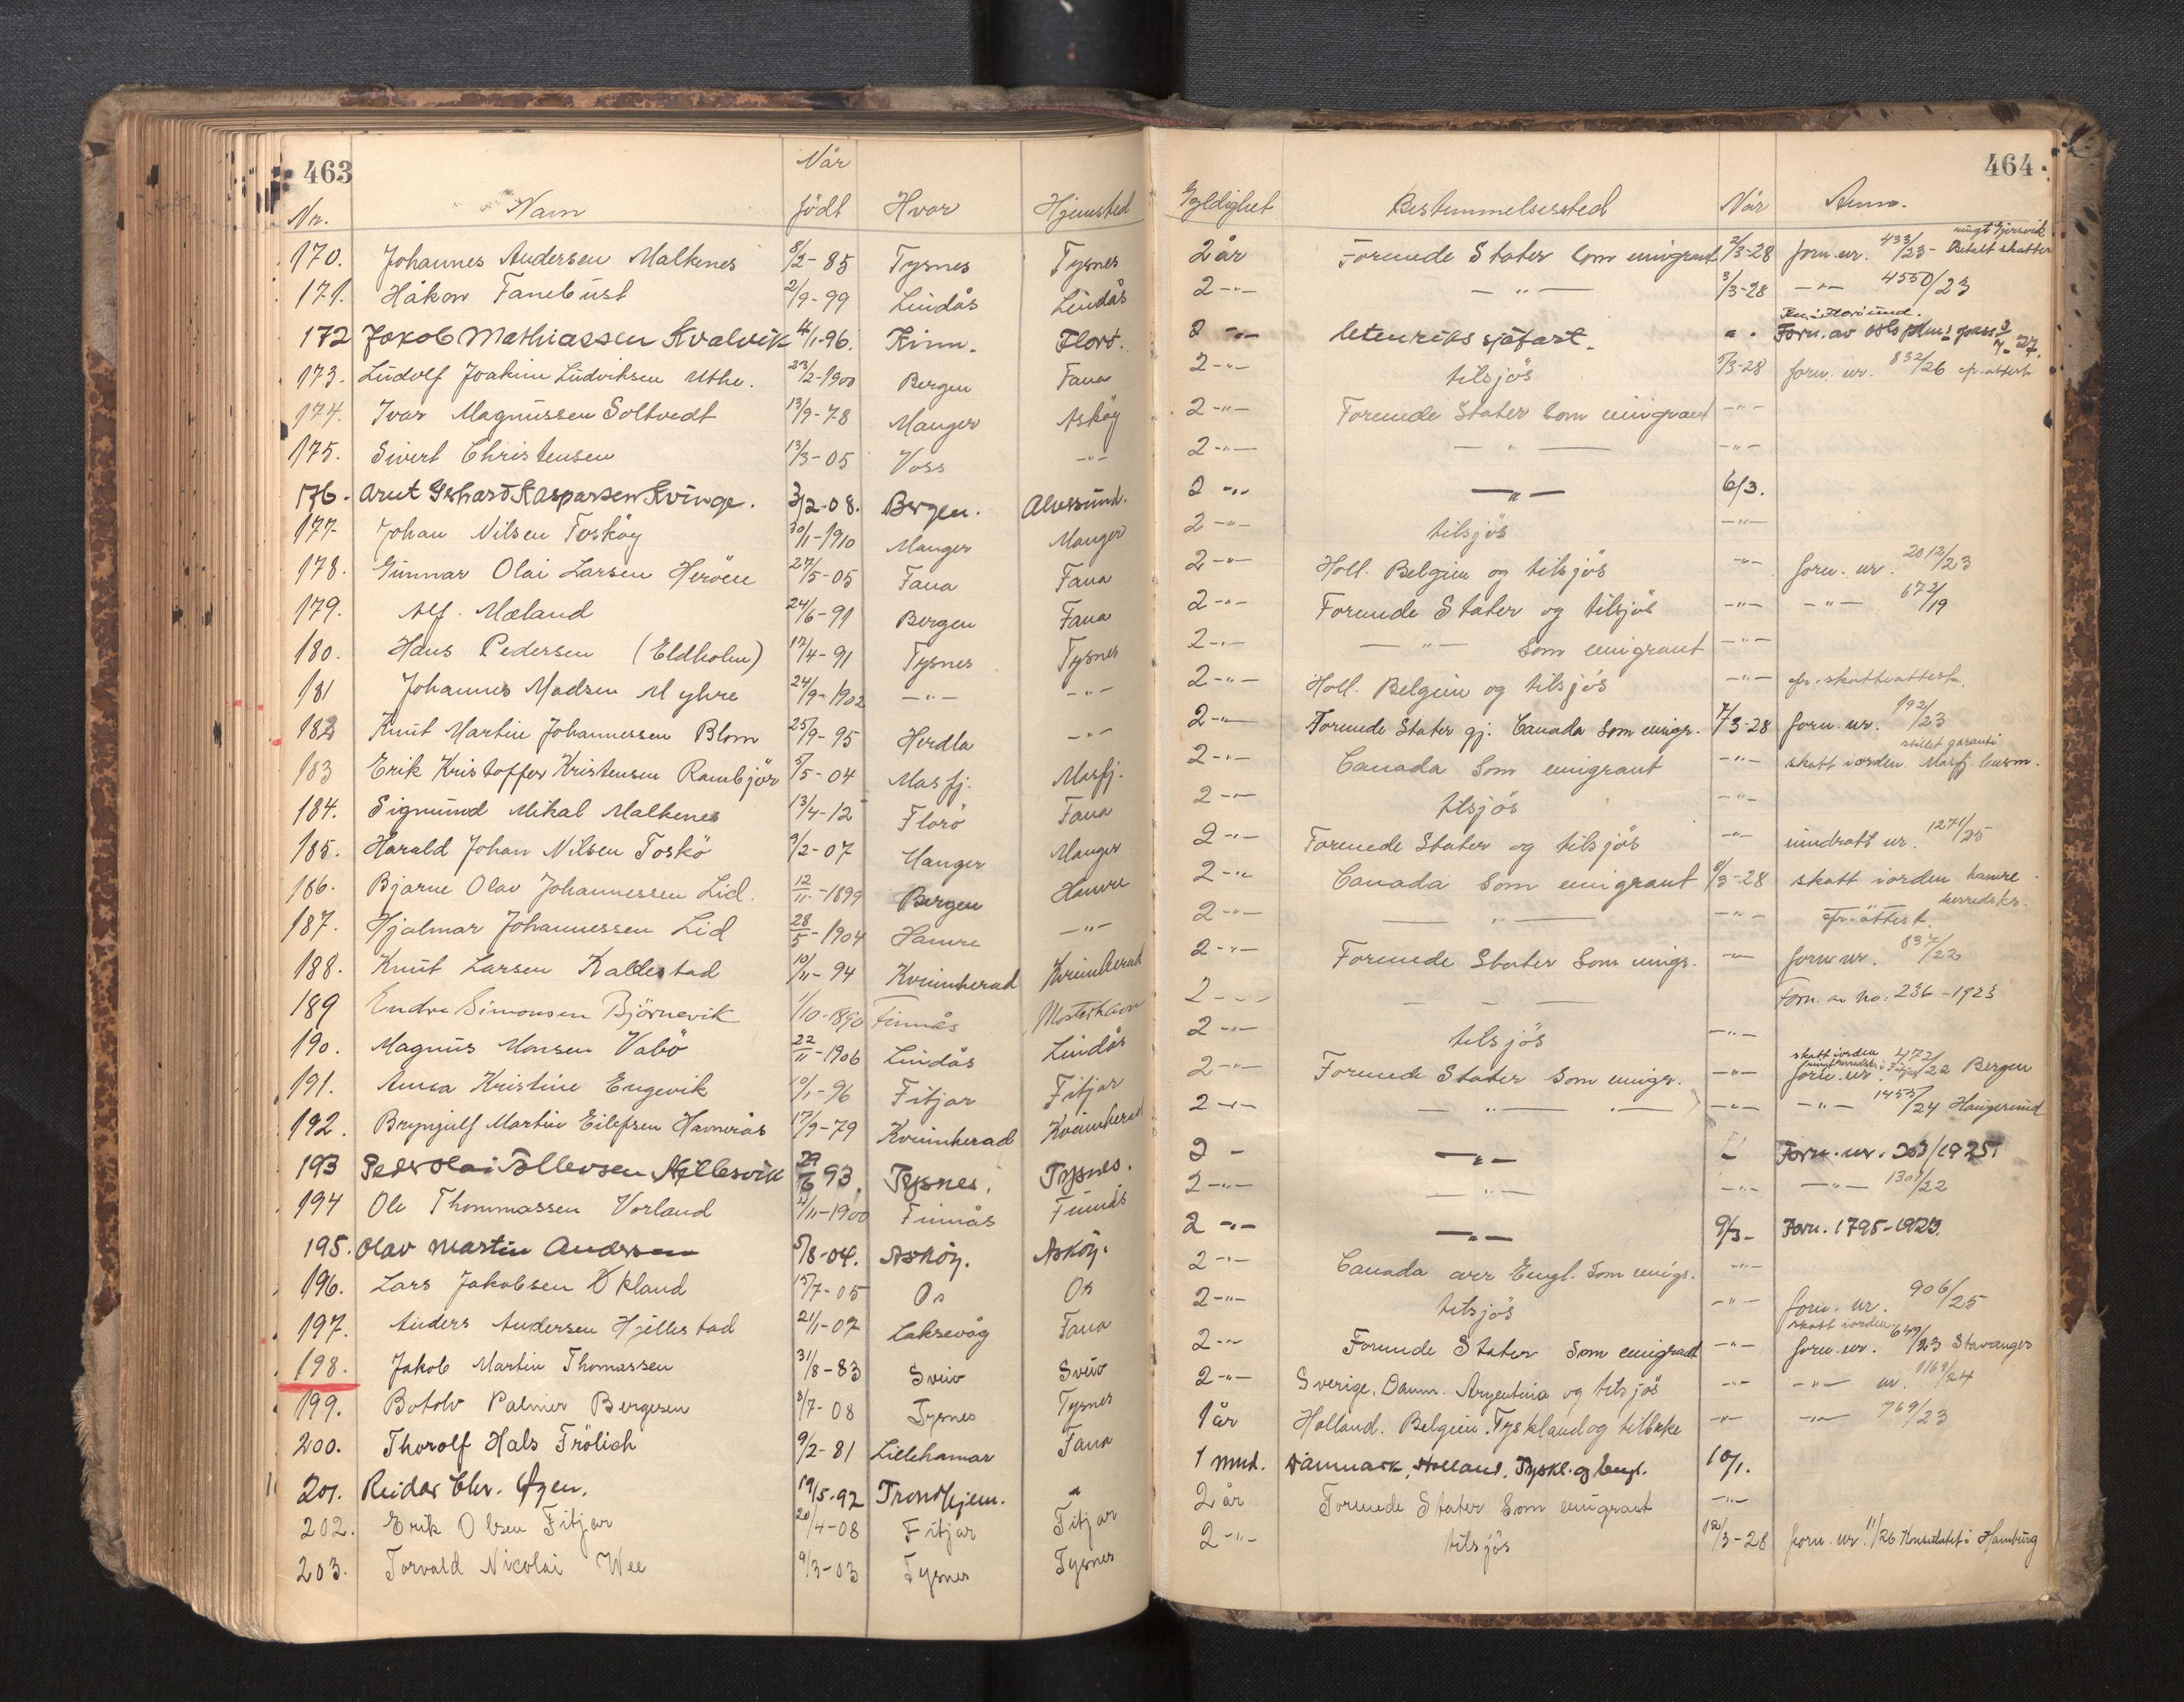 463
464
Nr. Navn Når födt Hvor Hjemsted Gyldighet Bestemmelsessted Når Anm.
170. Johannes Andersen Malkenes 8/2-85 Tysnes Tysnes 2 år Forenede Stater som emigrant 2/3-28 forn. nr. 433/23- Betalt skatter
171. Håkon Fanebust 2/9-99 Lindås Lindås 2 -"- — " — 3/3-28 -"- 4550/23
172 Jakob Mathiassen Kvalvik 4/1-96. Kinn. Florö. 2 -"- Utenriks sjöfart. " Forn. av Oslo pkm: pass 9/7-27.
173. Ludolf Joakim Ludviksen Uthe. 23/2-1900 Bergen Fana 2 -"- tilsjös 5/3-28 forn. nr. 832/26 efr. attest
174. Ivar Magnussen Soltvedt 13/9-78 Manger Asköy 2 -"- Forenede Stater som emigrant -"-
175. Sivert Christensen 13/3-05 Voss -"- 2 -"- — " — -"-
176. Arnt Gerhard Kasparsen Kvinge. 3/2-08. Bergen. Alversund. 2 -"- — " — 6/3.
177. Johan Nilsen Torsköy 30/1-1910 Manger Manger 2 -"- tilsjös -"-
178. Gunnar Olai Larsen Heröen 27/5-05 Fana Fana 2 -"- Holl. Belgien og tilsjös -"- forn. nr. 2012/23
179. Alf Mæland 24/6-91 Bergen Fana 2 -"- Forenede Stater og tilsjös -"- -"- 672/19
180. Hans Pedersen (Eldholm) 17/4-91 Tysnes Tysnes 2 -"- — " — som emigrant -"-
181 Johannes Madsen Myhre 24/9-1902 -"- -"- 2 -"- Holl. Belgien og tilsjös -"- efr. skatteattest.
182 Knut Martin Johannessen Blom 25/9-95 Herdla -"- 2 -"- Forenede Stater gj. Canada som emigr. 7/3-28 forn. nr. 192/23
183 Erik Kristoffer Kristensen Rambjör 5/5-04 Masfj. Masfj. 2 -"- Canada som emigrant -"- skatt iorden. stillet garanti Masfj. lensm.
184. Sigmund Mikal Malkenes 13/4-12 Florö Fana 2 -"- tilsjös -"-
185. Harald Johan Nilsen Toskö 9/2-07 Manger Manger 2 -"- Forenede Stater og tilsjös -"- inndratt nr. 1271/25
186. Bjarne Olav Johannessen Lid. 12/11-1899 Bergen Hamre 2 -"- Canada som emigrant 8/3-28 skatt iorden hamre herredsks.
187. Hjalmar Johannessen Lid 28/5-1904 Hamre -"- 2 -"- — " — -"- efr. attest.
188. Knut Larsen Kaldestad 10/11-94 Kvinnherad Kvinnherad 2 -"- Forenede Stater som emigr. -"- forn nr. 837/22
189 Endre Simonsen Björnevik 1/10-1890 Finnås Mosterhavn 2 -"- — — Forn. av No. 236-1923
190. Magnus Monsen Vabö 22/11-1906 Lindås Lindås 2 -"- tilsjös -"-
191. Anna Kristine Engevik 10/1-96 Fitjar Fitjar 2 -"- Forenede Stater som emigr. -"- skatt iorden forn. nr. 472/22 Bergen
192. Brynjulf Martin Eilefsen Havnerås 17/9-79 Kvinnherad Kvinnherad 2 -"- — " — " — -"- -"- 1455/24 Haugesund
193 Peder Olai Tollevsen Nillesvik 29/6 93. Tysnes. Tysnes. 2 - — " — Forn. nr. 263/1925.
194 Ole Thommassen Vorland 4/11-1900 Finnås Finnås 2 -"- — " — -"- -"- 1301/22
195. Olav Martin Andersen 5/8-04. Asköy. Asköy. 2 -"- — " — 9/3- Forn. 1795-1923.
196. Lars Jakobsen Ökland 15/7-05 Os Os 2 -"- Canada over Engl. som emigr. -"-
197. Anders Andersen Hjellestad 21/1-07 Laksevåg Fana 2 -"- tilsjös -"- forn. nr. 906/25
198. Jakob Martin Thomassen 31/8-83 Sveio Sveio 2 -"- Forenede Stater som emigrant -"- skatt iorden forn. nr. 649/23 Stavanger
199. Botolv Palmer Bergesen 8/7-08 Tysnes Tysnes 2 -"- Sverige, Danm. Argentina og tilsjös -"- -"- nr. 1169/24
200. Thorolf Hals Frölich 9/2-81 Lillehamar Fana 1 år Holland. Belgien, Tyskland og tilbake -"- -"- 769/23
201. Reidar Chr. Øyen. 19/5-92 Trondhjem. " 1 mnd. Danmark, Holland, Tyskl. og Engl. 10/1.
202. Erik Olsen Fitjar 20/4-08 Fitjar Fitjar 2 år Forenede Stater som emigrant -"-
203. Torvald Nicolai Wee 9/3-03 Tysnes Tysnes 2 -"- tilsjös 12/3-28 forn. nr. 11/26 Konsulatet i Hamburg